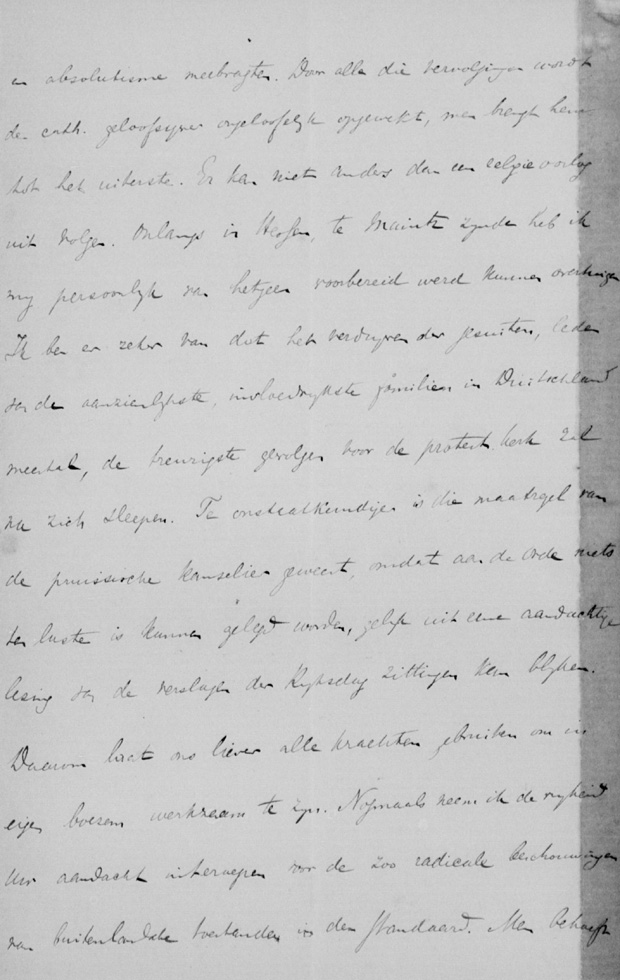 en absolutisme meebragten. Door alle die vervolgingen wordt
de cath. geloofsijver ongeloofelijk opgewekt, men brengt hem
tot het uiterste. Er kan niet anders dan een religie oorlog
uit volgen. Onlangs in Hessen, te Maintz zijnde heb ik
mij persoonlijk van hetgeen voorbereid werd kunnen overtuigen
Ik ben er zeker van dat het verdrijven der jesuiten, leden
van de aanzienlijkste, invloedrijkste familien in Duitschland
meestal, de treurigste gevolgen voor de protest. kerk zal
na zich sleepen. Te onstaatkundiger is die maatregel van
de pruissische kanselier geweest, omdat aan de orde niets
ten laste is kunnen gelegd worden, gelijk uit eene aandachtige
lezing van de verslagen der Rijksdag zittingen kan blijken.
Daarom laat ons liever alle krachten gebruiken om in
eigen boezem werkzaam te zijn. Nogmaals neem ik de vrijheid
Uw aandacht interoepen voor de zoo radicale beschouwingen
van buitenlandsche toestanden in den Standaard. Men behoeft